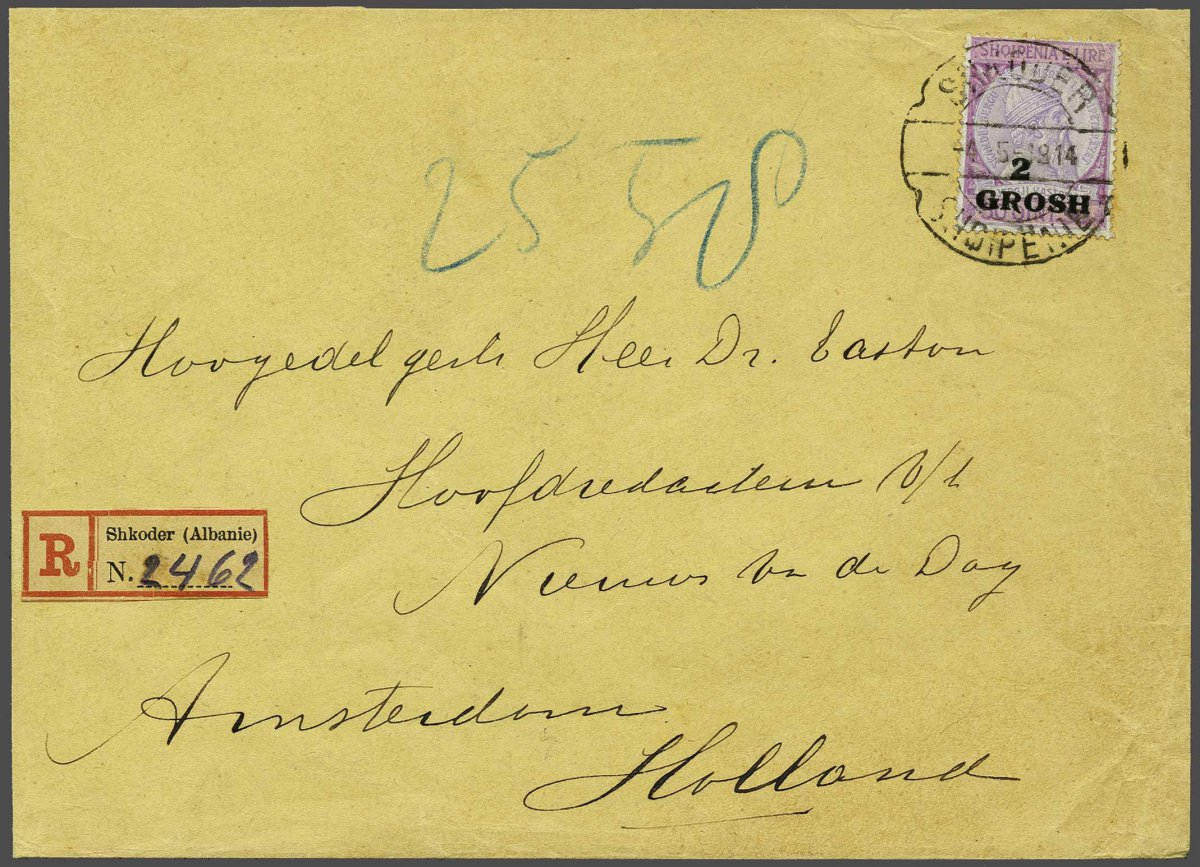 SHQIPENIA E LIRE
SHKODER
-4 5-1914
2
GROSH
25 58
Hoogedelgestr Heer Dr. Easton
Hoofdredacteur v/h
Nieuws van de Dag
R
Shkoder (Albanie)
N. 2462
Amsterdam
Holland